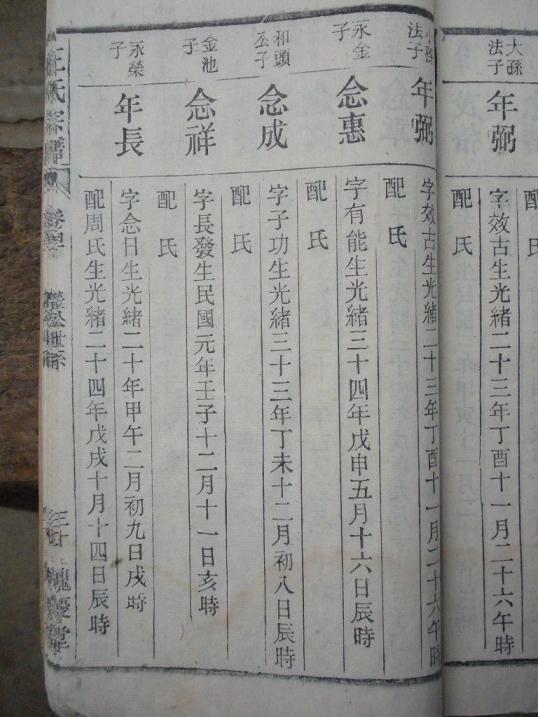 大孫
法子
年弼
字效古生光緒二十三年丁酉十一月二十六午時
配 氏
小孫
法子
年弼
字效古生光緒二十三年丁酉十一月二十六午時
配 氏
永金
子
念惠
字有能生光緒三十四年戊申五月十六日辰時
配 氏
和頭
丕子
念成
字子功生光緒三十三年丁未十二月初八日辰時
配 氏
金池
子
念祥
字長發生民國元年壬子十二月十一日亥時
配 氏
永榮
子
年長
字念日生光緒二十年甲午二月初九日戌時
配周氏生光緒二十四年戊戌十月十四日辰時
氏宗譜